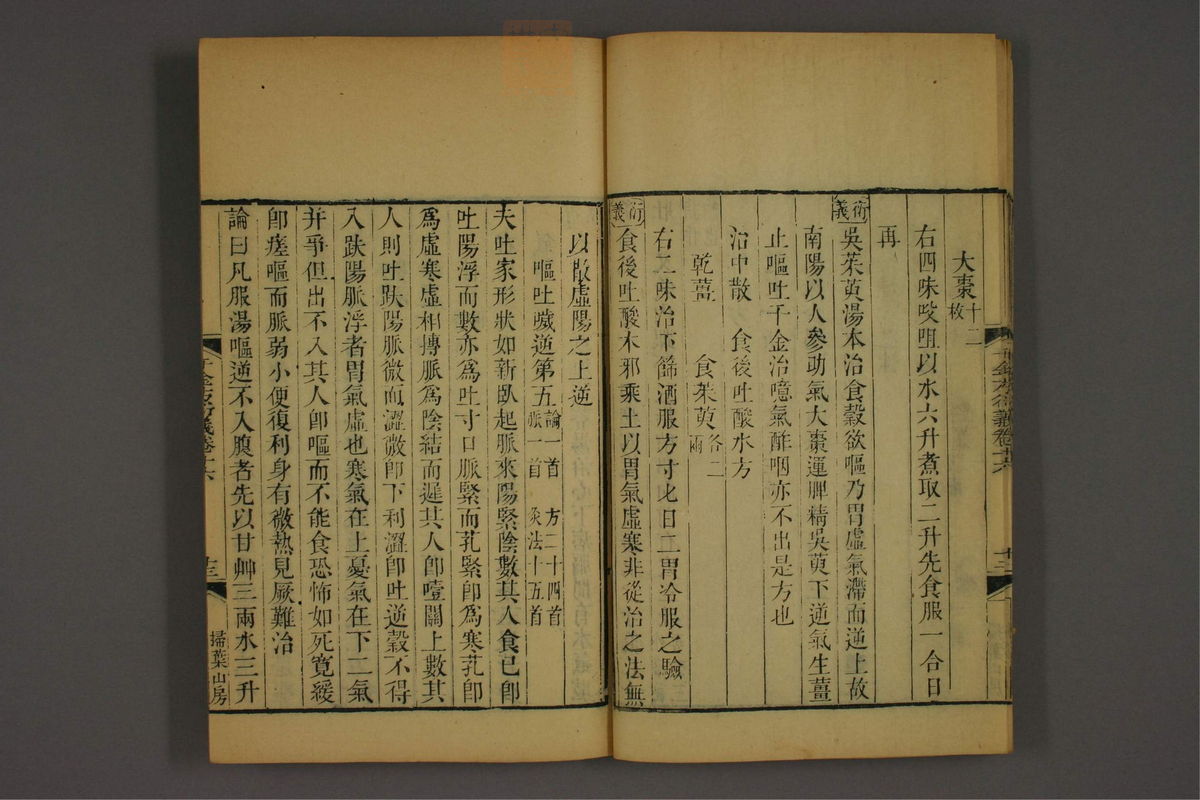 大棗十二枚
右四味㕮咀以水六升煮取二升先食服一合日
再
衍義
吳茱萸湯本治食穀欲嘔乃胃虛氣滯而逆上故
南陽以人參助氣大棗運脾精吳萸下逆氣生薑
止嘔吐千金治噫氣酢咽亦不出是方也
治中散 食後吐酸水方
乾薑 食茱萸各二兩
右二味治下篩酒服方寸匕日二胃冷服之驗
衍義
食後吐酸木邪乘土以胃氣虛寒非從治之法無
千金方衍義卷十六
廿三
掃葉山房
以散虛陽之上逆
嘔吐噦逆第五論一首 脈一首 方二十四首 灸法十五首
夫吐家形狀如新臥起脈來陽緊陰數其人食已卽
吐陽浮而數亦爲吐寸口脈緊而芤緊卽爲寒芤卽
爲虛寒虛相摶脈爲陰結而遲其人卽噎關上數其
人則吐趺陽脈微而澀微卽下利澀卽吐逆穀不得
入趺陽脈浮者胃氣虛也寒氣在上憂氣在下二氣
并爭但出不入其人卽嘔而不能食恐怖如死寬緩
卽瘥嘔而脈弱小便復利身有微熱見厥難治
論曰凡服湯嘔逆不入腹者先以甘艸三兩水三升